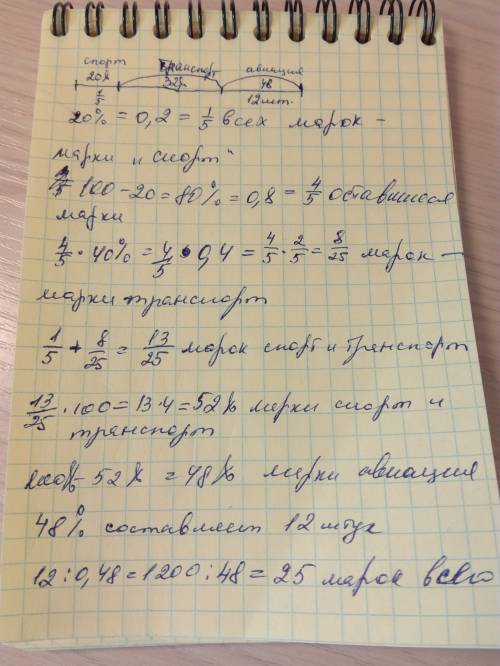 спорт транспорт авиация
20% 32% 48
1/5 12 шт.
20% = 0,2 = 1/5 всех марок -
марки и спорт"
100 - 20 = 80% = 0,8 = 4/5 оставшиеся
марки
4/5 · 40% = 4/5 · 0,4 = 4/5 · 2/5 = 8/25 марок -
марки транспорт
1/5 + 8/25 = 13/25 марок спорт и транспорт
13/25 · 100 = 13·4 = 52% марки спорт и
транспорт
100% - 52% = 48% марки авиация
48% составляет 12 штук
12 : 0,48 = 1200 : 48 = 25 марок всего